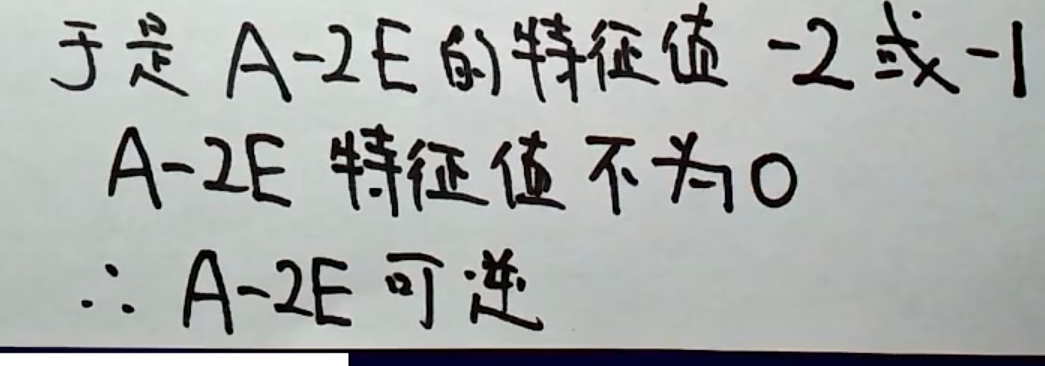 于是 A-2E 的特征值 -2或-1
A-2E 特征值不为0
∴ A-2E 可逆